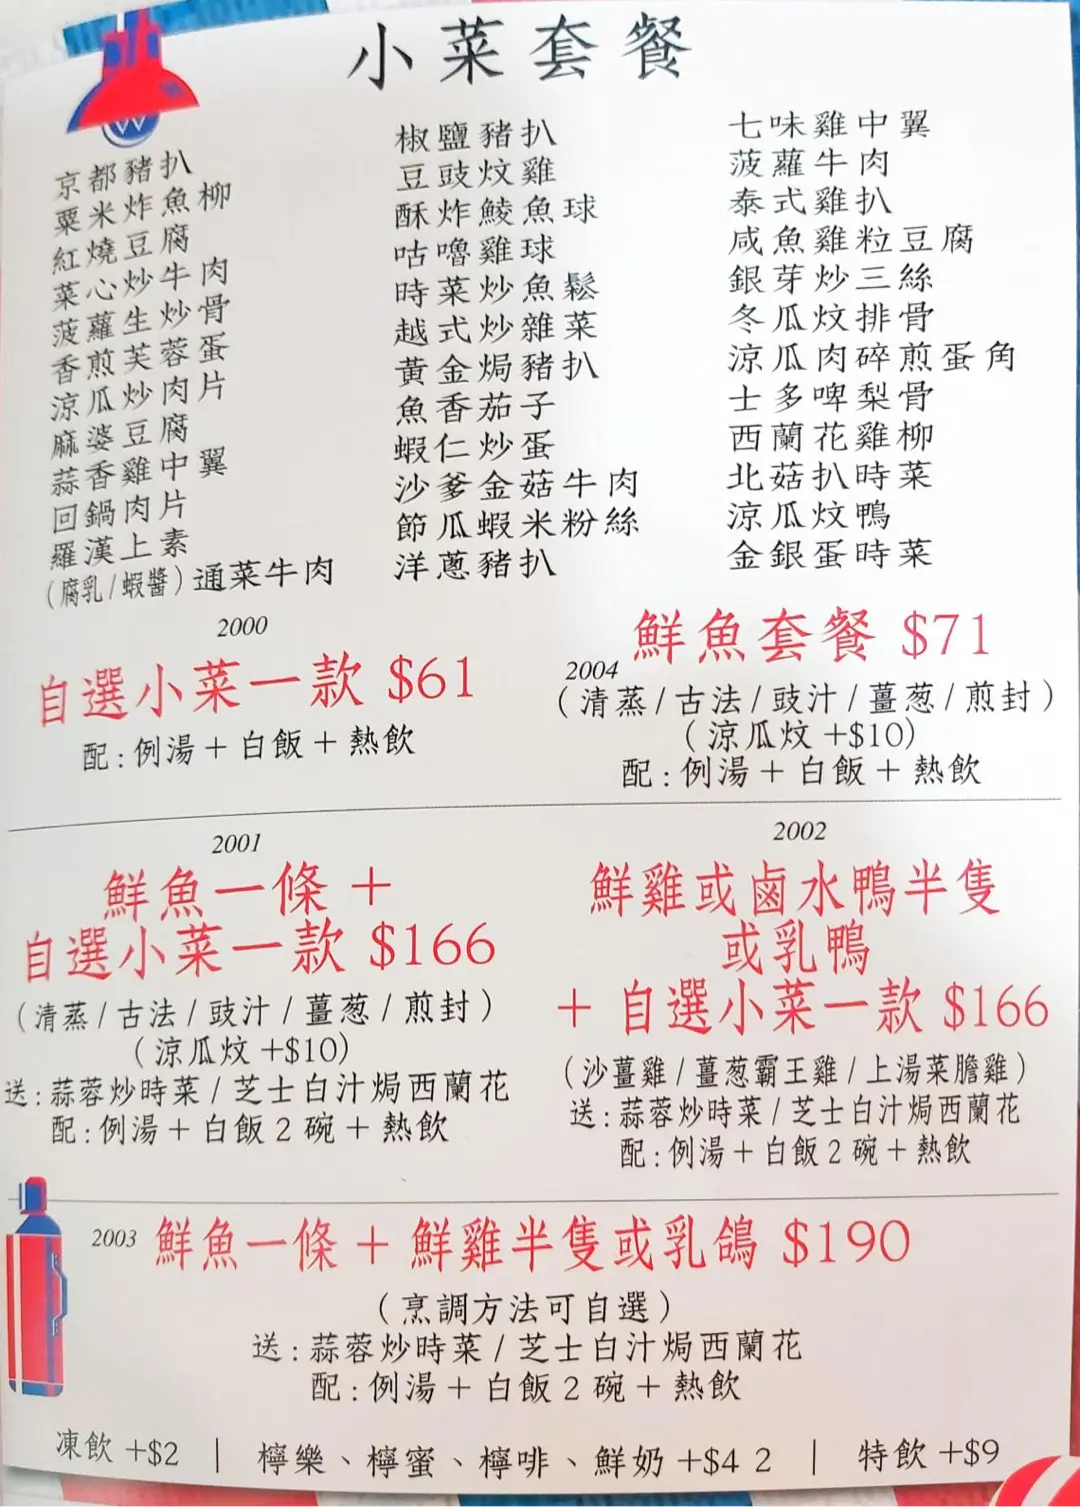 小菜套餐
京都豬扒
粟米炸魚柳
紅燒豆腐
菜心炒牛肉
菠蘿生炒骨
香煎芙蓉蛋
涼瓜炒肉片
麻婆豆腐
蒜香雞中翼
回鍋肉片
羅漢上素
(腐乳/蝦醬)通菜牛肉
椒鹽豬扒
豆豉炆雞
酥炸鯪魚球
咕嚕雞球
時菜炒魚鬆
越式炒雜菜
黃金焗豬扒
魚香茄子
蝦仁炒蛋
沙爹金菇牛肉
節瓜蝦米粉絲
洋蔥豬扒
七味雞中翼
菠蘿牛肉
泰式雞扒
咸魚雞粒豆腐
銀芽炒三絲
冬瓜炆排骨
涼瓜肉碎煎蛋角
士多啤梨骨
西蘭花雞柳
北菇扒時菜
涼瓜炆鴨
金銀蛋時菜
2000
自選小菜一款 $61
配:例湯+白飯+熱飲
2004 鮮魚套餐 $71
(清蒸/古法/豉汁/薑葱/煎封)
(涼瓜炆+$10)
配:例湯+白飯+熱飲
2001
鮮魚一條+
自選小菜一款 $166
(清蒸/古法/豉汁/薑葱/煎封)
(涼瓜炆+$10)
送:蒜蓉炒時菜/芝士白汁焗西蘭花
配:例湯+白飯2碗+熱飲
2002
鮮雞或鹵水鴨半隻
或乳鴨
+自選小菜一款 $166
(沙薑雞/薑葱霸王雞/上湯菜膽雞)
送:蒜蓉炒時菜/芝士白汁焗西蘭花
配:例湯+白飯2碗+熱飲
2003 鮮魚一條+鮮雞半隻或乳鴿 $190
(烹調方法可自選)
送:蒜蓉炒時菜/芝士白汁焗西蘭花
配:例湯+白飯2碗+熱飲
凍飲+$2 | 檸樂、檸蜜、檸啡、鮮奶+$4 2 | 特飲+$9